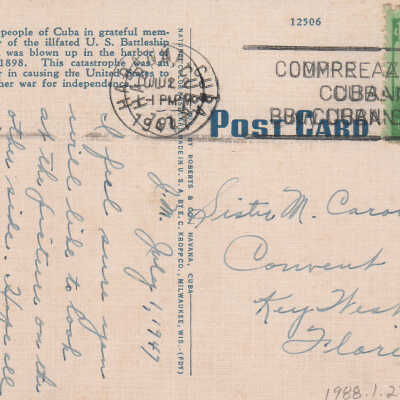 people of Cuba in grateful mem-
of the illfated U. S. Battleship
was blown up in the harbor of
1898. This catastrophe was an
r in causing the United States to
her war for independence
12506
Post Card
BY ROBERTS & CO., HAVANA, CUBA
MADE IN U.S.A. BY E. C. KROPP CO., MILWAUKEE, WIS. (PDY)
J.M. July 1, 1947
I feel sure you
will like to look
at the picture on the
other side. Hope all
Sister M. Caro
Convent
Key West
Flori
1988.1.2